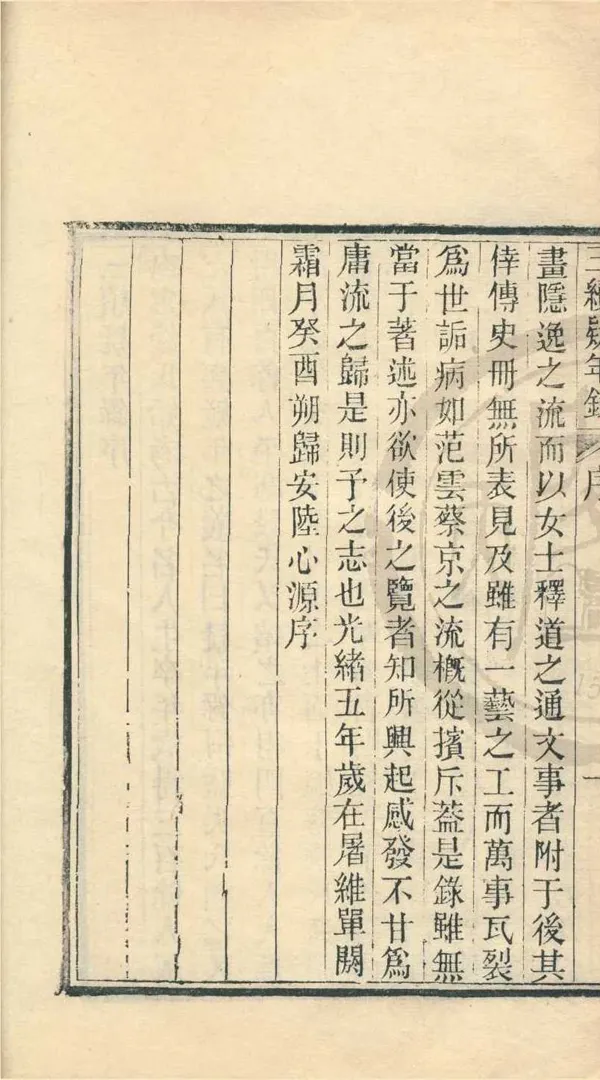 三續疑年錄 序
畫隱逸之流而以女士釋道之通文事者附于後其
倖傳史冊無所表見及雖有一藝之工而萬事瓦裂
爲世詬病如范雲蔡京之流槪從擯斥葢是錄雖無
當于著述亦欲使後之覽者知所興起感發不甘爲
庸流之歸是則予之志也光緒五年歲在屠維單閼
霜月癸酉朔歸安陸心源序